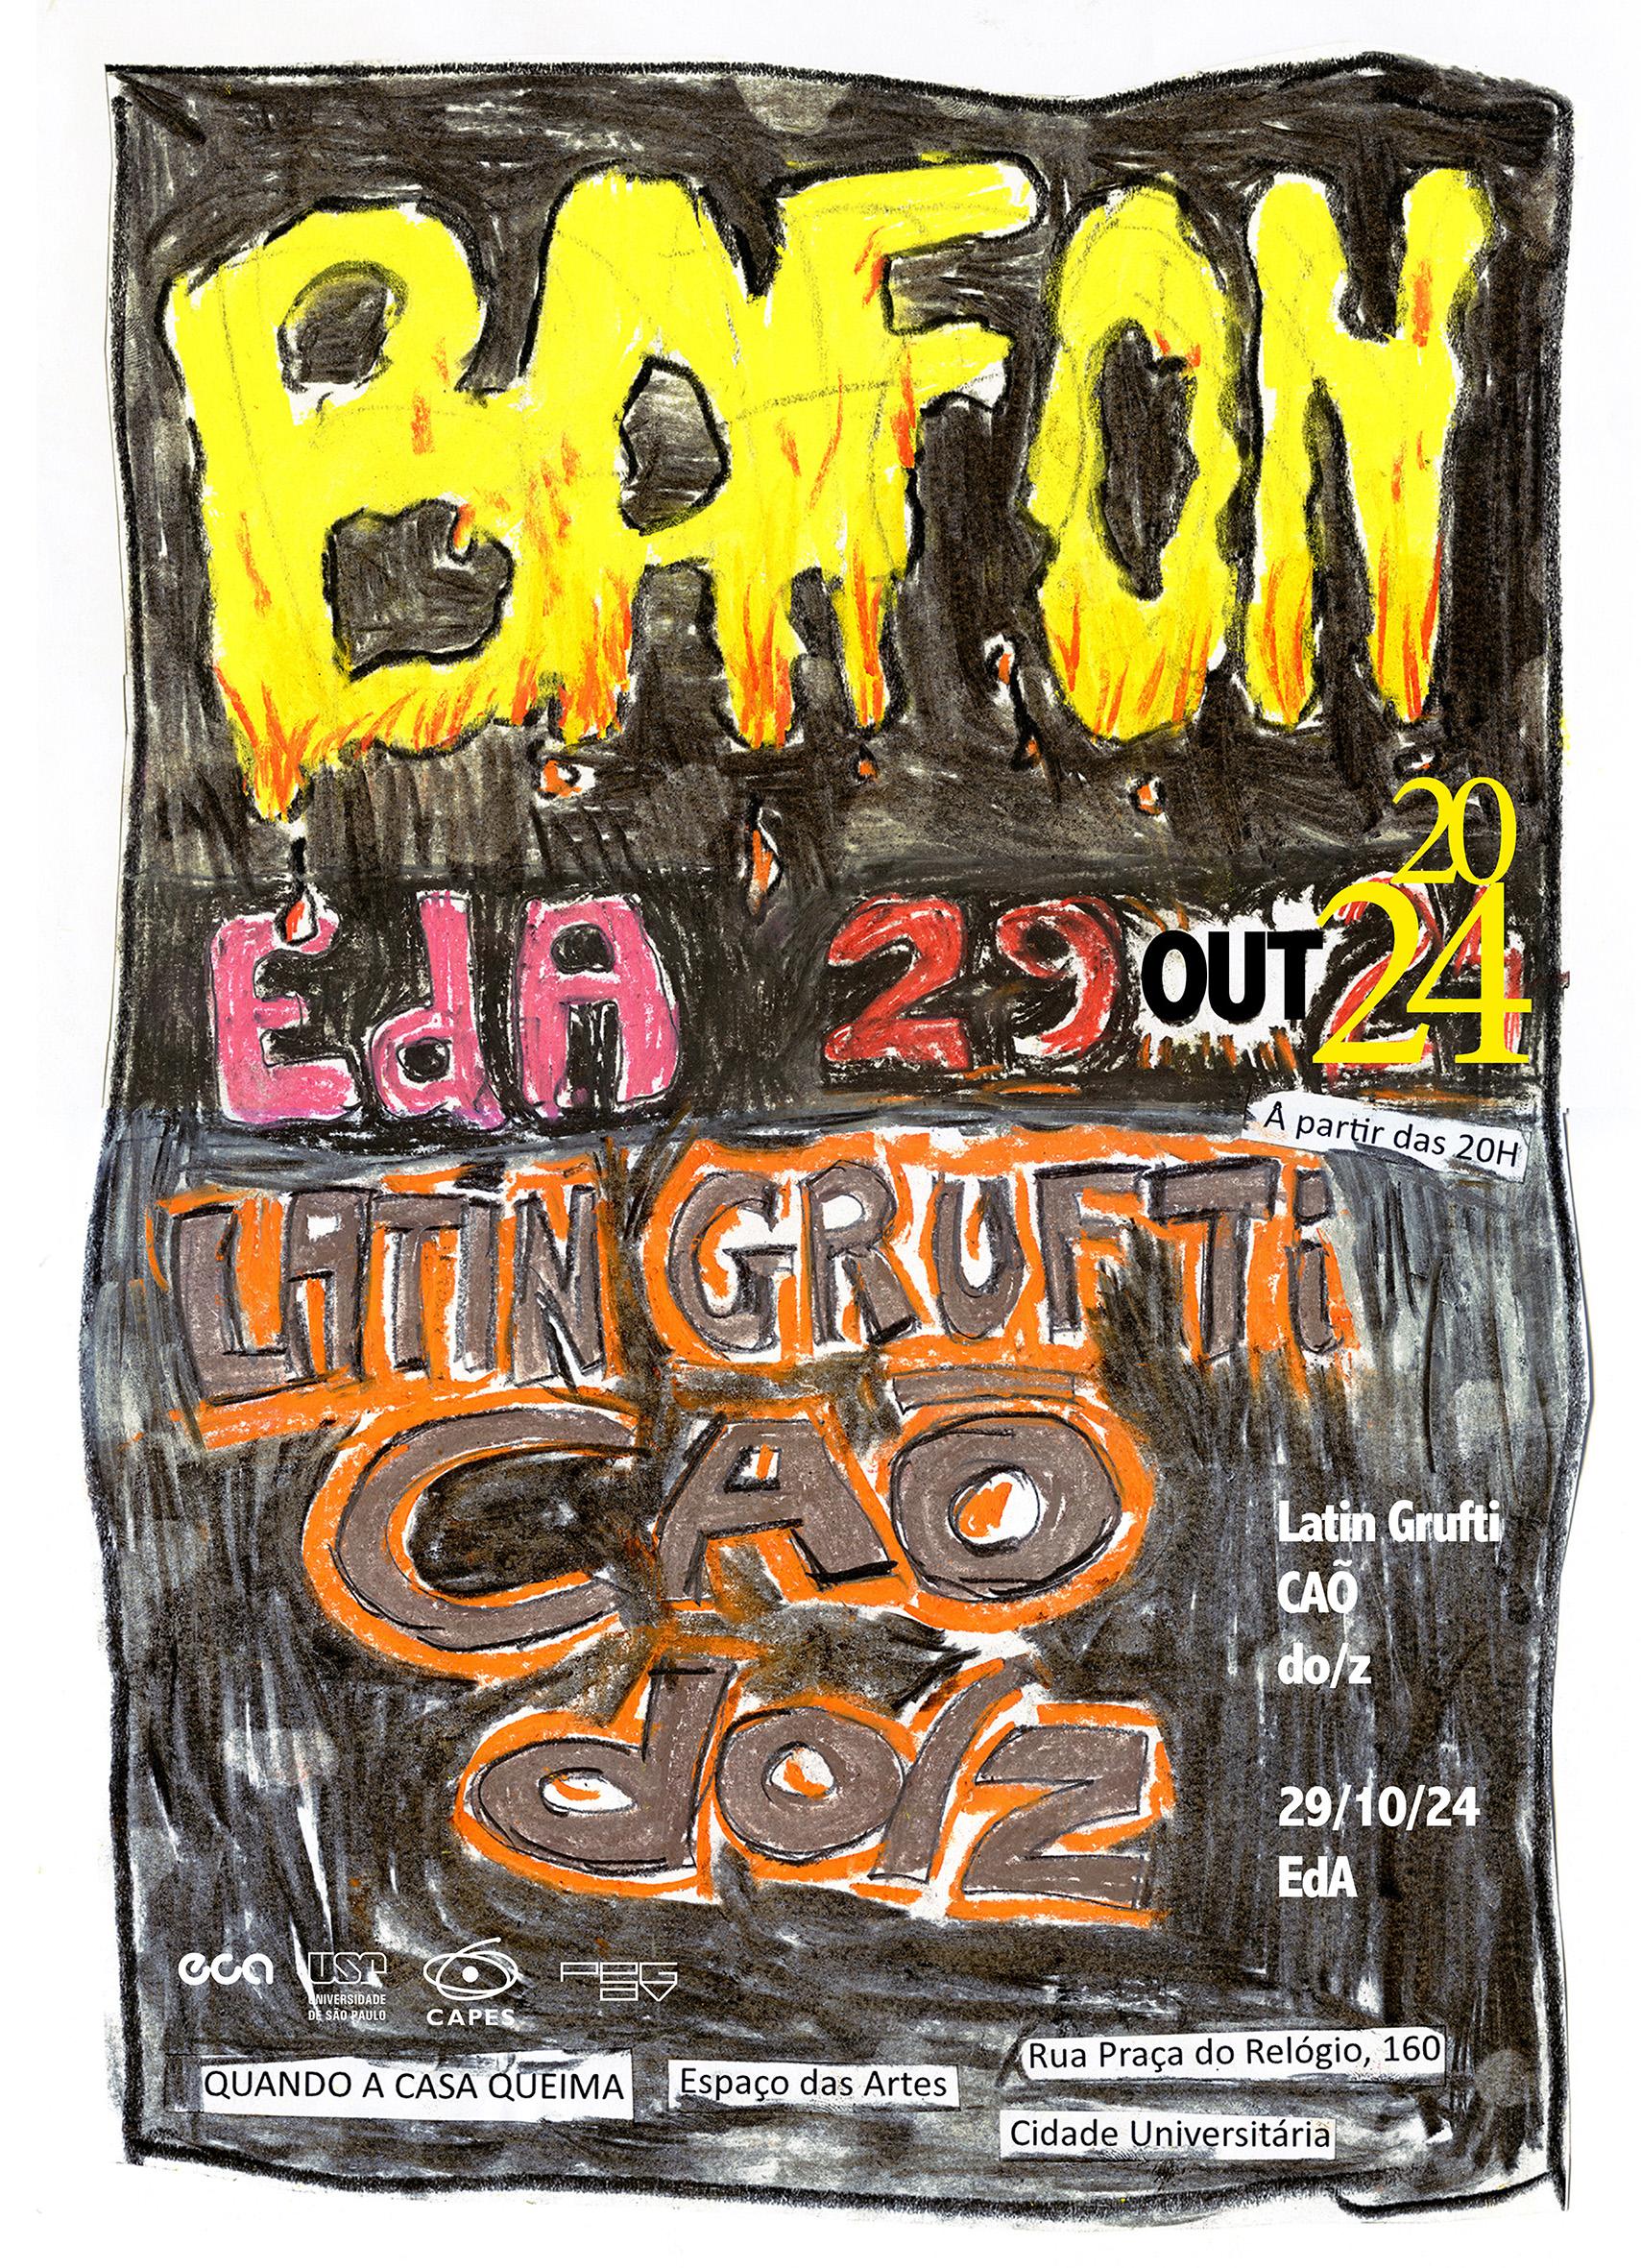 BAFON
EdA 29 OUT 2024
24
À partir das 20H
LATIN GRUFTi
CAŌ
do/z
Latin Grufti
CAÕ
do/z
29/10/24
EdA
eca
USP
UNIVERSIDADE
DE SÃO PAULO
CAPES
QUANDO A CASA QUEIMA
Espaço das Artes
Rua Praça do Relógio, 160
Cidade Universitária